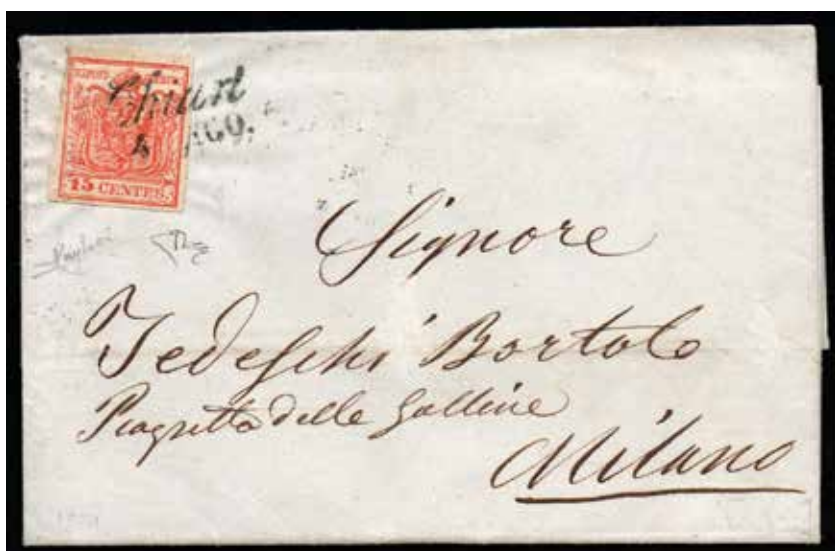 Chiari
4 AGO.
15 CENTES.
Signore
Tedeschi Bortolo
Piazzetta delle Galline
Milano